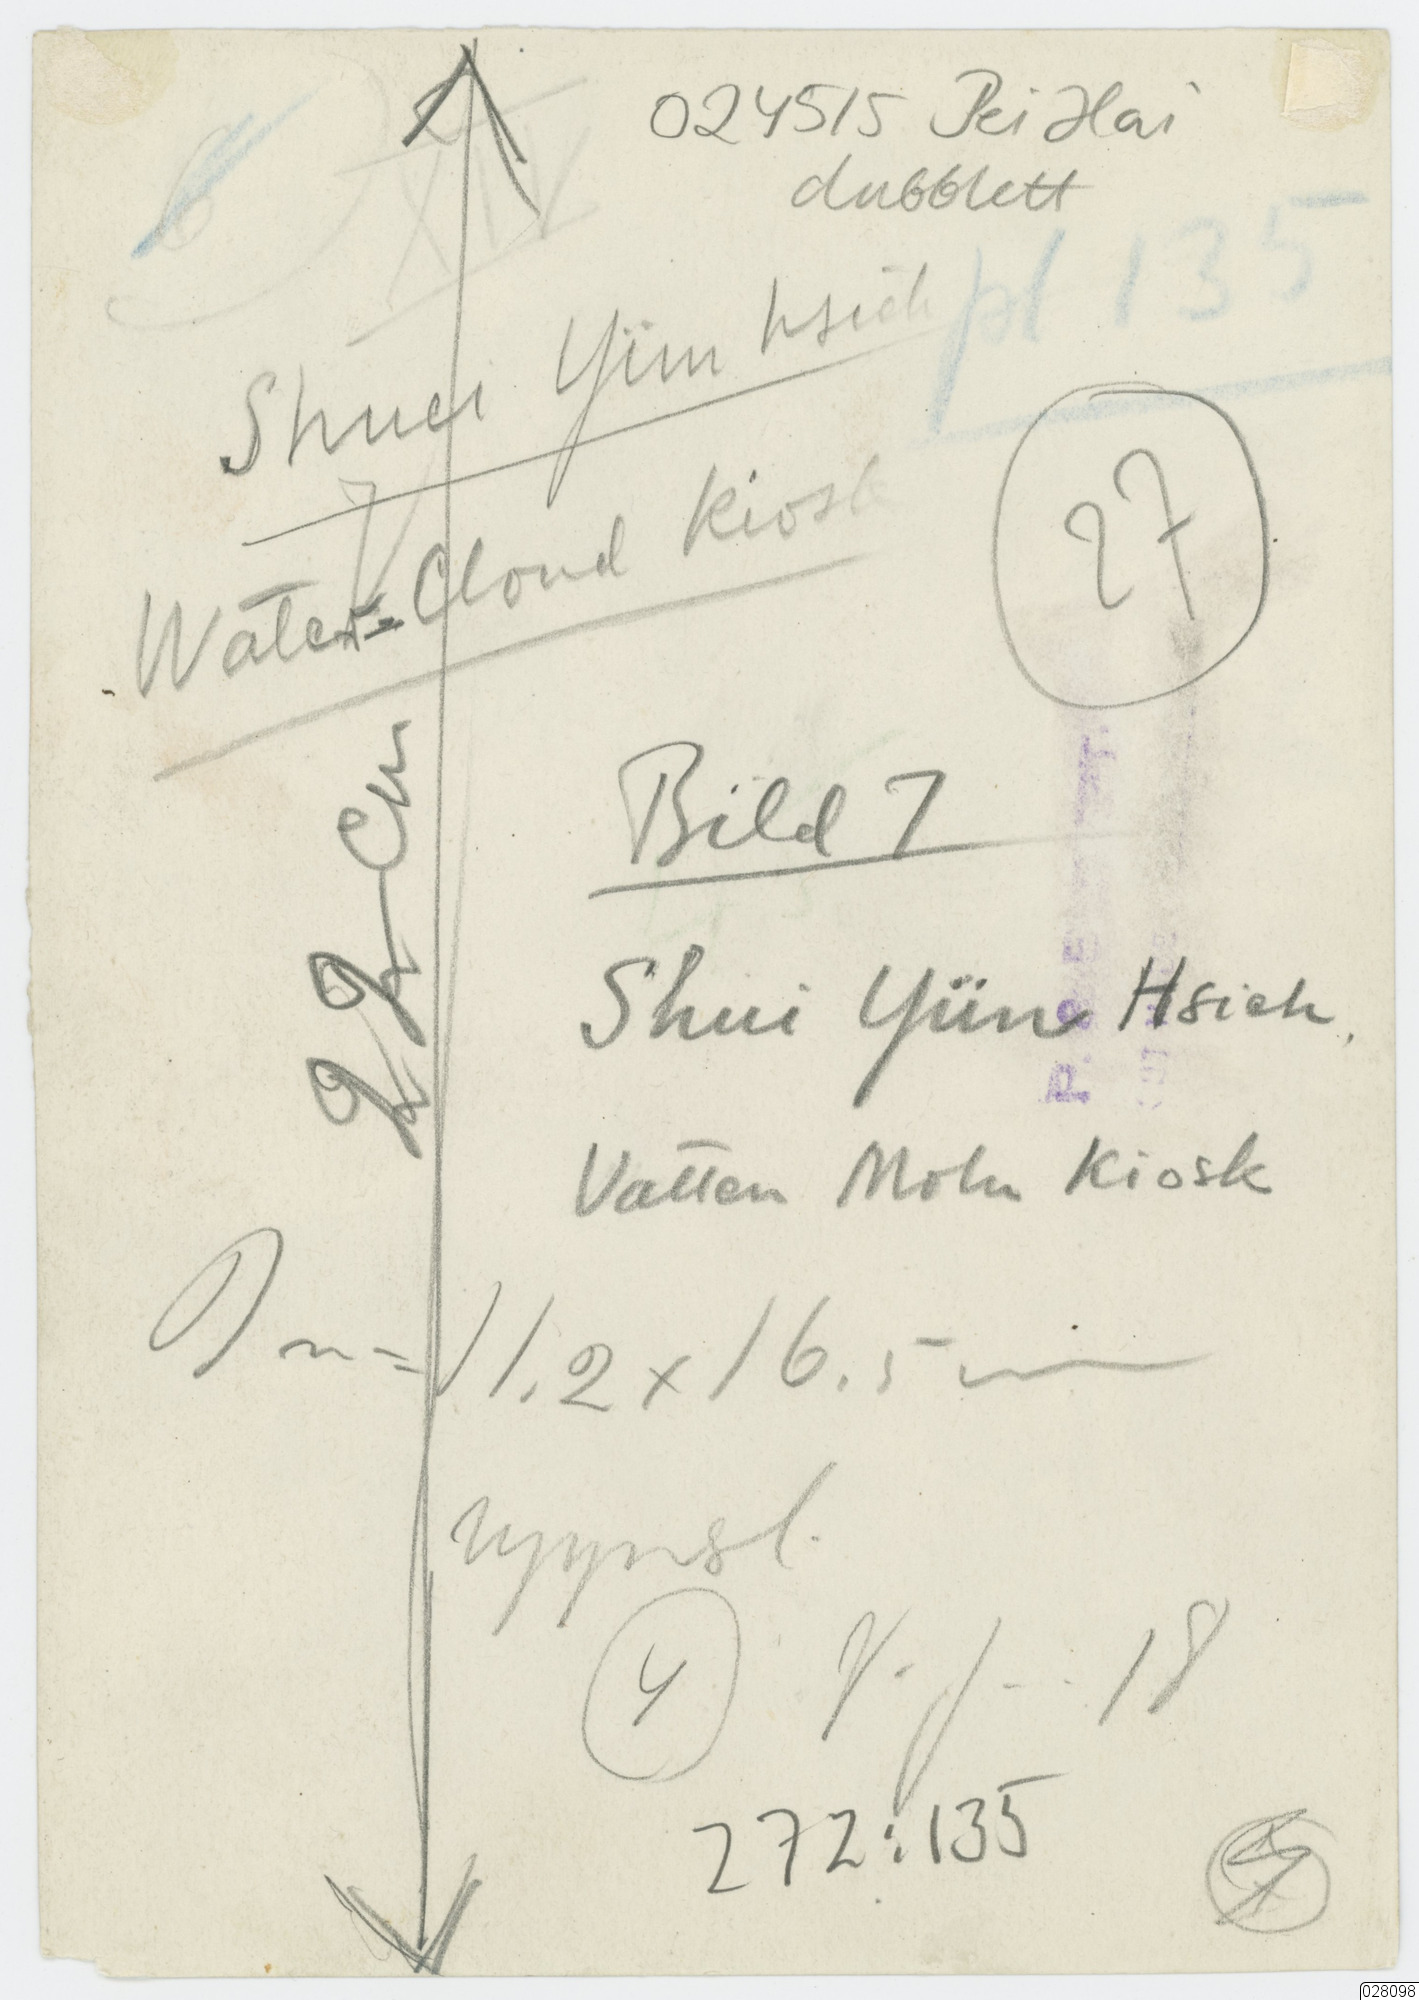 024515 Pei Hai
dubblett
XIV
pl 135
Shuei Yün hsieh
27
Water-Cloud Kiosk
22 cm
Bild 7
Shui Yün Hsieh
Vatten Moln Kiosk
11.2 x 16.5
4
18
272:135
028098